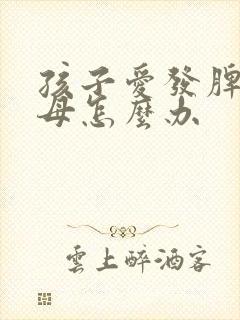 孩子愛發脾
母怎麼办
雲上醉酒客